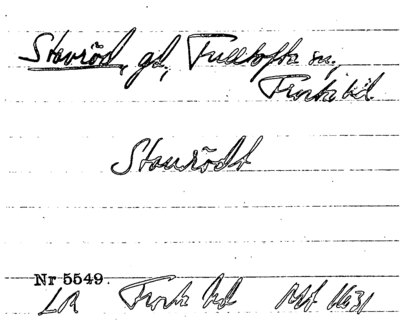 Stavröd, gd, Fulltofta sn,
Frosta hd
Staurödt
Nr 5549.
LA Frosta hd 1631